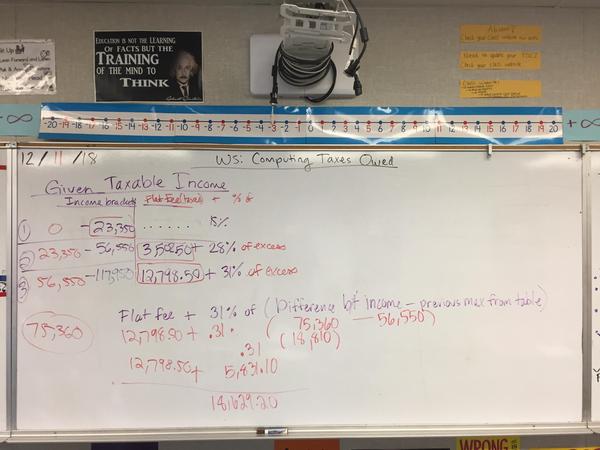 EDUCATION IS NOT THE LEARNING
OF FACTS BUT THE
TRAINING
OF THE MIND TO
THINK
Absent?
Check your class website
-∞
-20 -19 -18 -17 -16 -15 -14 -13 -12 -11 -10 -9 -8 -7 -6 -5 -4 -3 -2 -1 0 1 2 3 4 5 6 7 8 9 10 11 12 13 14 15 16 17 18 19 20
+∞
12/11/18
WS: Computing Taxes Owed
Given Taxable Income
Income brackets Flat Fee (taxes) + % of
① 0 - 23,350 ...... 15%
② 23,350 - 56,550 3,502.50 + 28% of excess
③ 56,550 - 117,950 12,798.50 + 31% of excess
Flat fee + 31% of (Difference b/t income - previous max from table)
75,360
12,798.50 + .31 · (75,360 - 56,550)
(18,810)
.31
12,798.50 + 5,831.10
18,629.20
WRONG